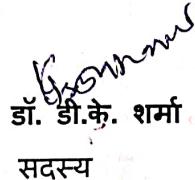 डॉ. डी.के. शर्मा
सदस्य